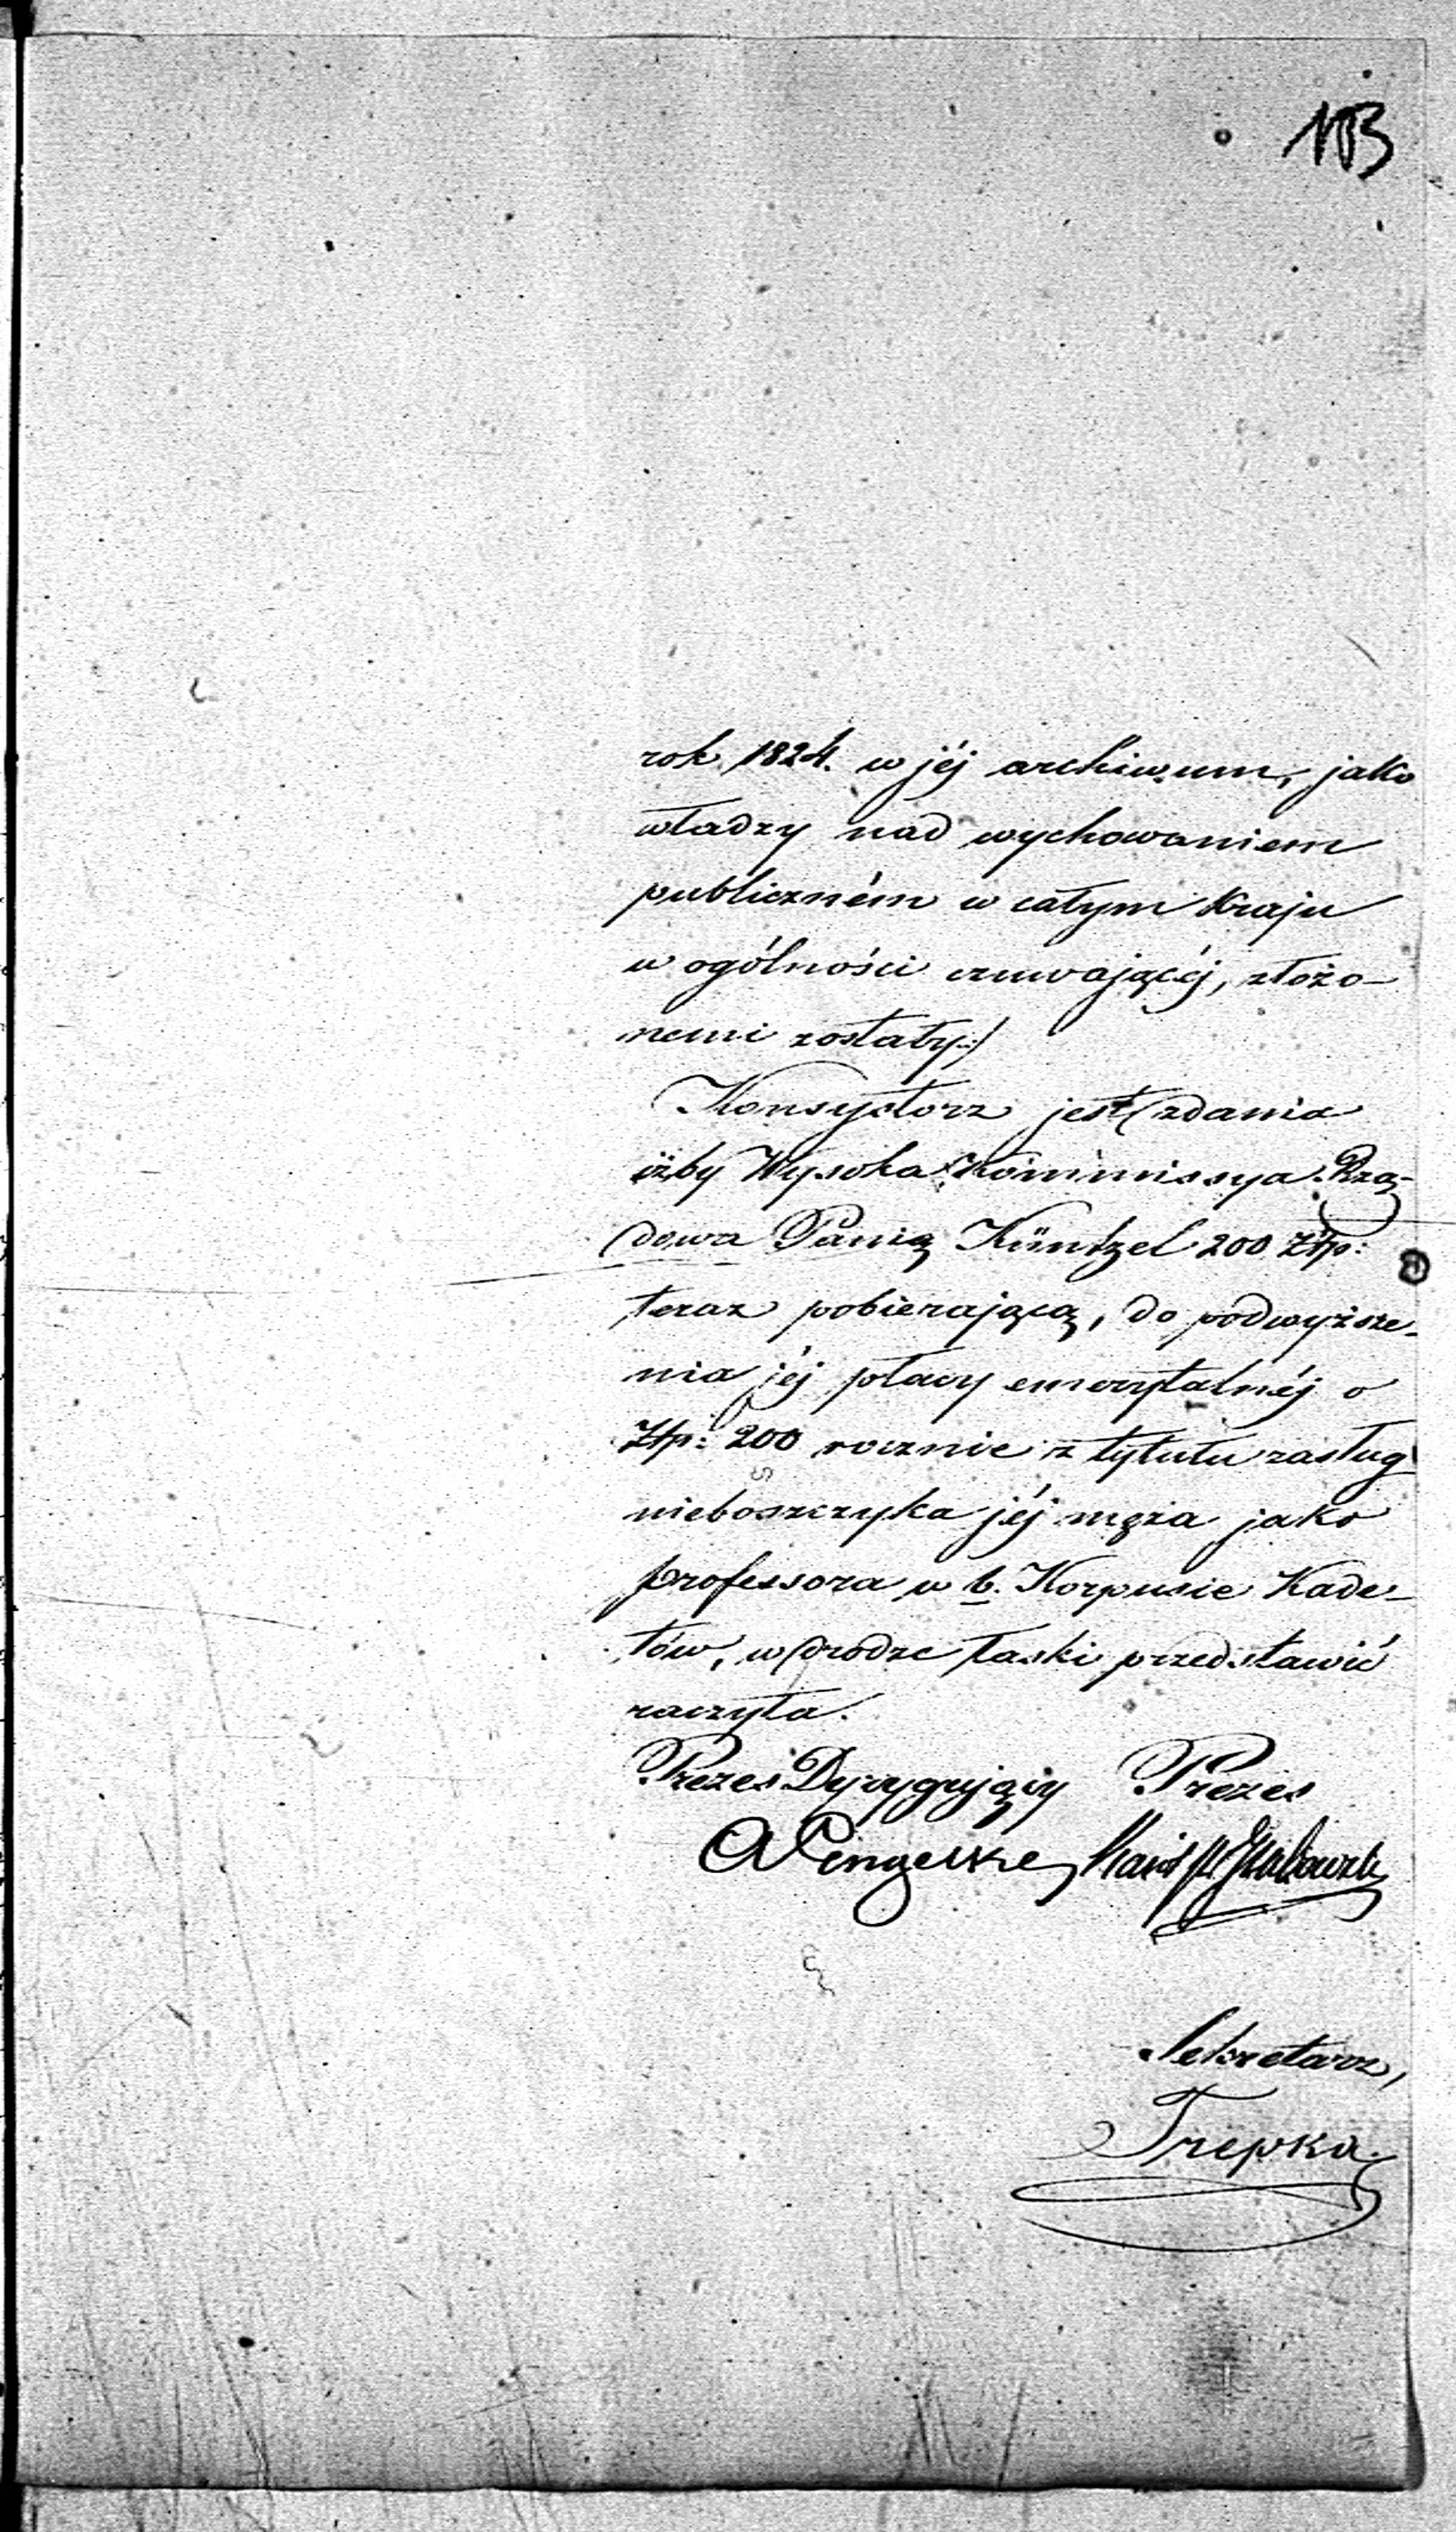 103
rok 1824. w jéj archiwum, jako
władzy nad wychowaniem
publiczném w całym Kraju
w ogólności czuwającéj, złożo-
nemi zostały:/
Konsystorz jest zdania
iżby Wysoka Kommissya Rzą-
dowa Panią Küntzel 200 Złp:
teraz pobierającą, do podwyższe-
nia jéj płacy emerytalnéj o
Złp: 200 rocznie z tytułu zasług
nieboszczyka jéj męża jako
professora w b. Korpusie Kade-
tów, w drodze łaski przedstawić
raczyła.
Prezes Dyrygujący Prezes
Sekretarz,
Trepka